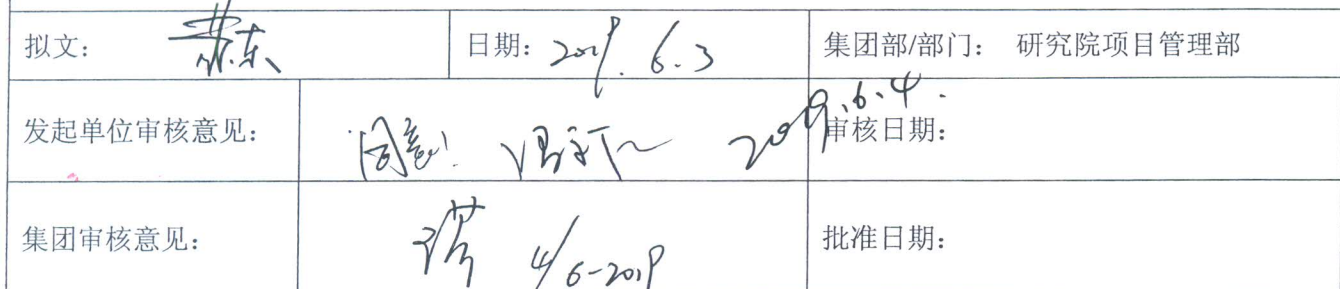 拟文： 日期：2019.6.3 集团部/部门： 研究院项目管理部
发起单位审核意见： 同意! 2019.6.4. 审核日期：
集团审核意见： 4/6-2019 批准日期：